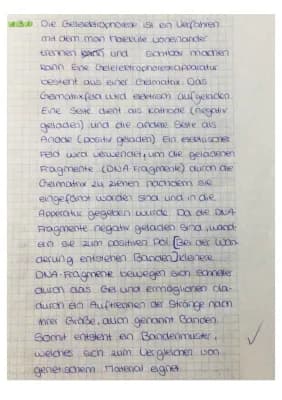 Die Gelelektrophorese ist ein Verfahren
mit dem man Moleküle voneinander
trennen und sichtbar machen
kann. Eine Gelelektrophoreseapparatur
besteht aus einer Gelmatrix. Das
Gelmatrixfeld wird elektrisch aufgeladen.
Eine Seite dient als Kathode (negativ
geladen) und die andere Seite als
Anode (positiv geladen). Ein elektrisches
Feld wird verwendet, um die geladenen
Fragmente (DNA-Fragmente) durch die
Gelmatrix zu ziehen nachdem sie
eingefärbt worden sind und in die
Apparatur gegeben wurde. Da die DNA-
Fragmente negativ geladen sind, wand-
ern sie zum positiven Pol. [Bei der Wan-
derung entstehen Banden] kleinere
DNA-Fragmente bewegen sich schneller
durch das Gel und ermöglichen da-
durch ein Auftrennen der Stränge nach
ihrer Größe, auch genannt Banden.
Somit entsteht ein Bandenmuster,
welches sich zum Vergleichen von
genetischem Material eignet.